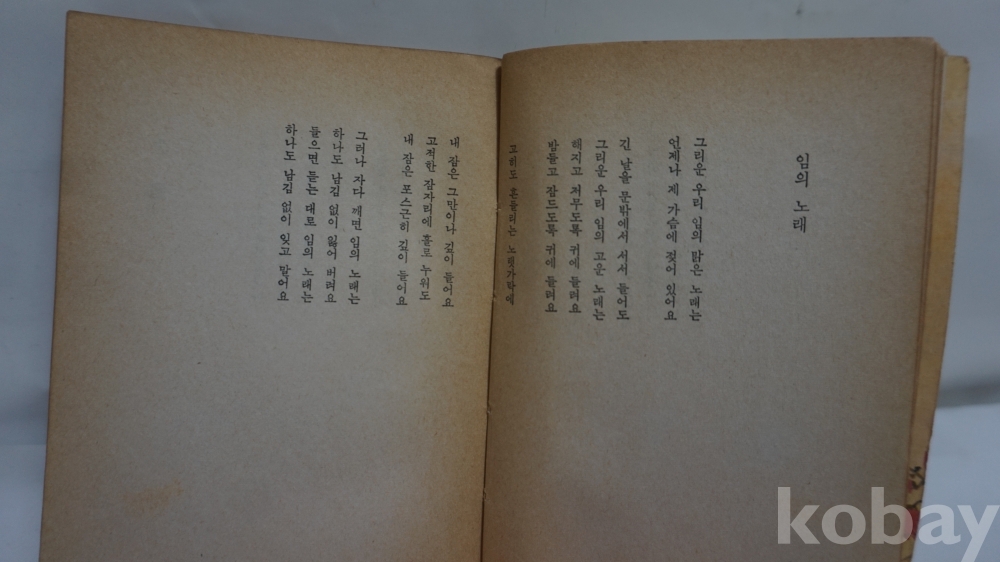 임의 노래
그리운 우리 임의 맑은 노래는
언제나 제 가슴에 젖어 있어요
긴 날을 문밖에서 서서 들어도
그리운 우리 임의 고운 노래는
해지고 저무도록 귀에 들려요
밤들고 잠드도록 귀에 들려요
고히도 흔들리는 노랫가락에
내 잠은 그만이나 깊이 들어요
고적한 잠자리에 홀로 누워도
내 잠은 포스근히 깊이 들어요
그러나 자다 깨면 임의 노래는
하나도 남김 없이 잃어 버려요
들으면 듣는 대로 임의 노래는
하나도 남김 없이 잊고 말아요
kobay